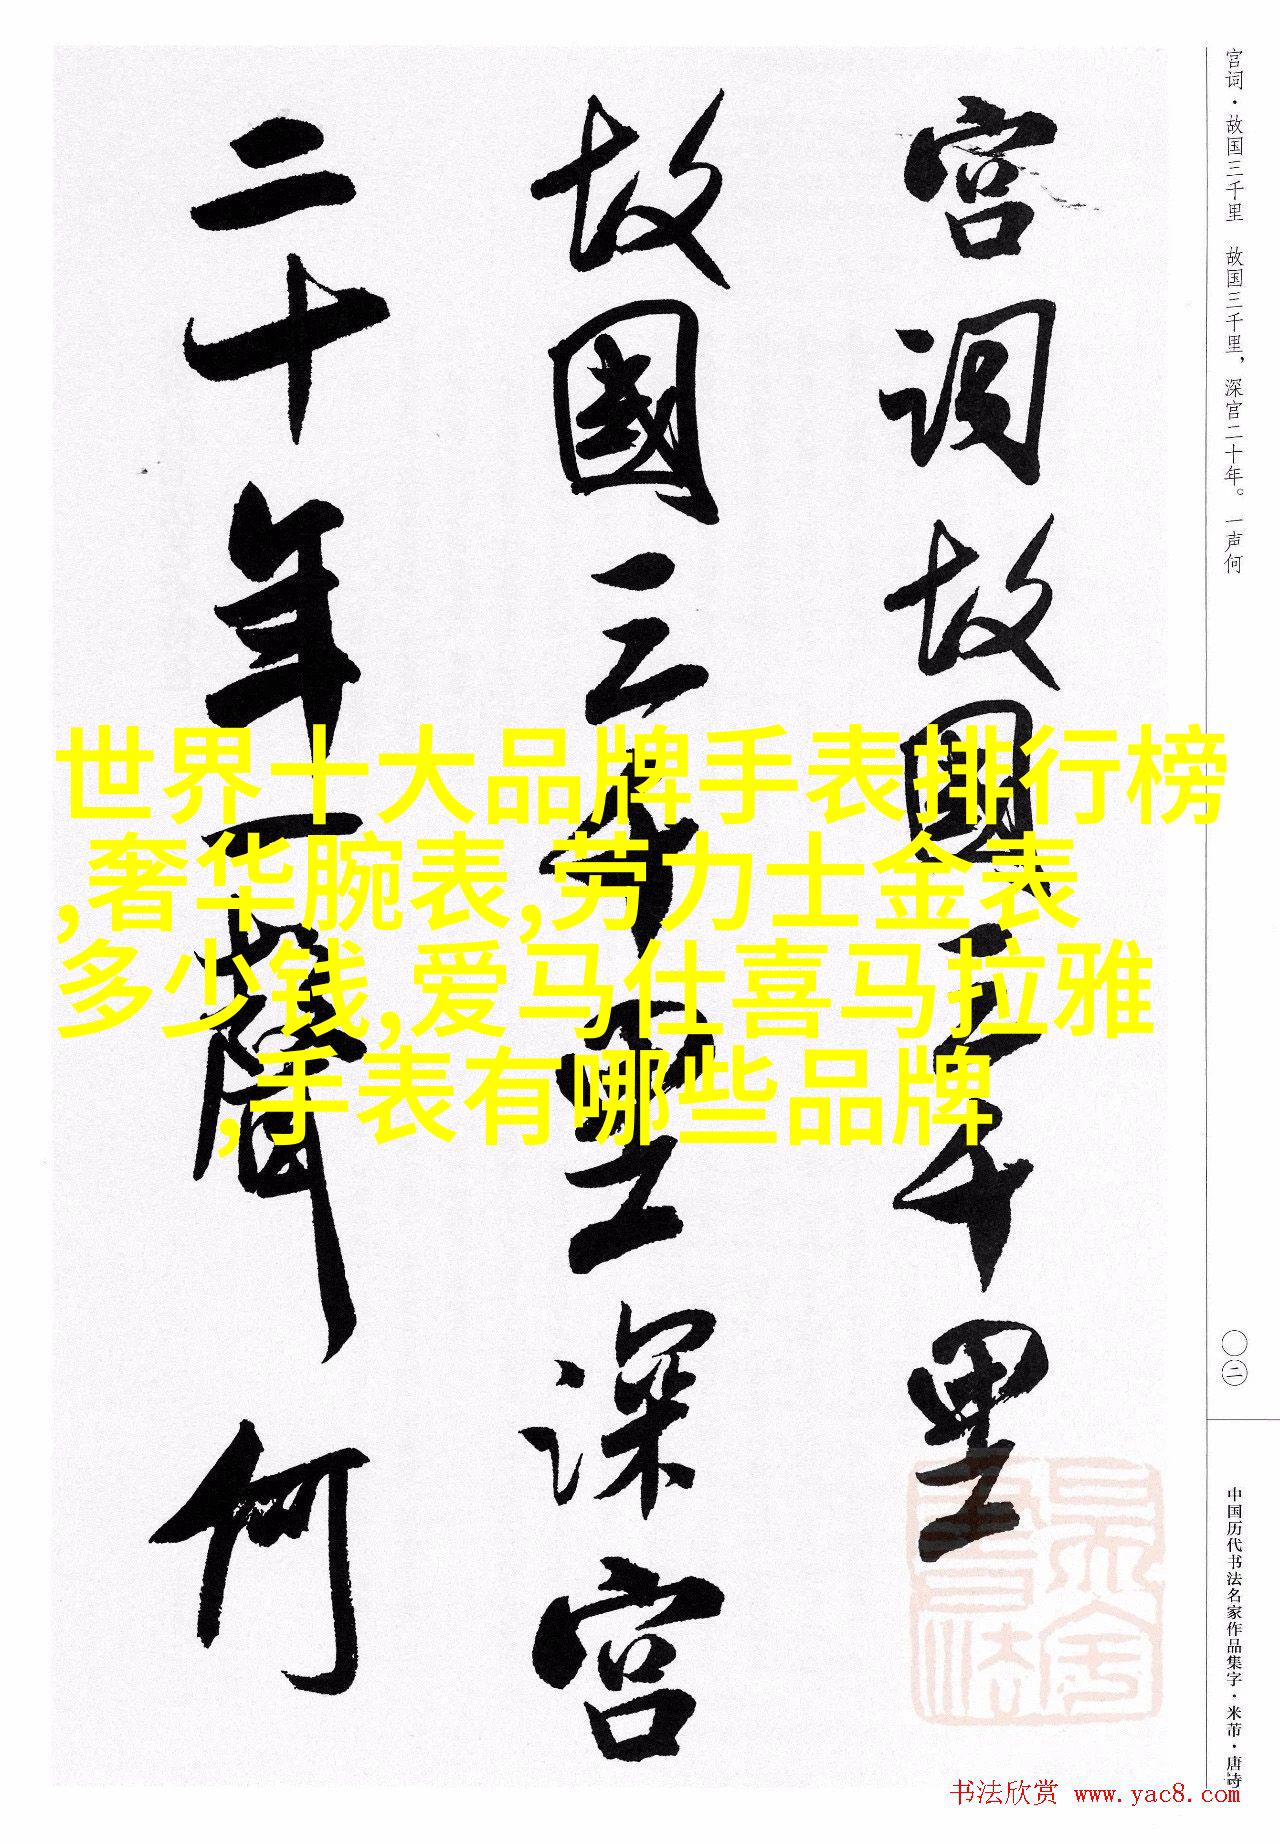 宫词·故国三千里 故国三千里，深宫二十年。一声何
宫词故國三千里
故國三千里深宫
二十年一聲何
世界十大品牌手表排行榜
,奢华腕表,劳力士金表
多少钱,爱马仕喜马拉雅
,手表有哪些品牌
〇二
中国历代书法名家作品集字·米芾·唐诗
书法欣赏 www.yac8.com